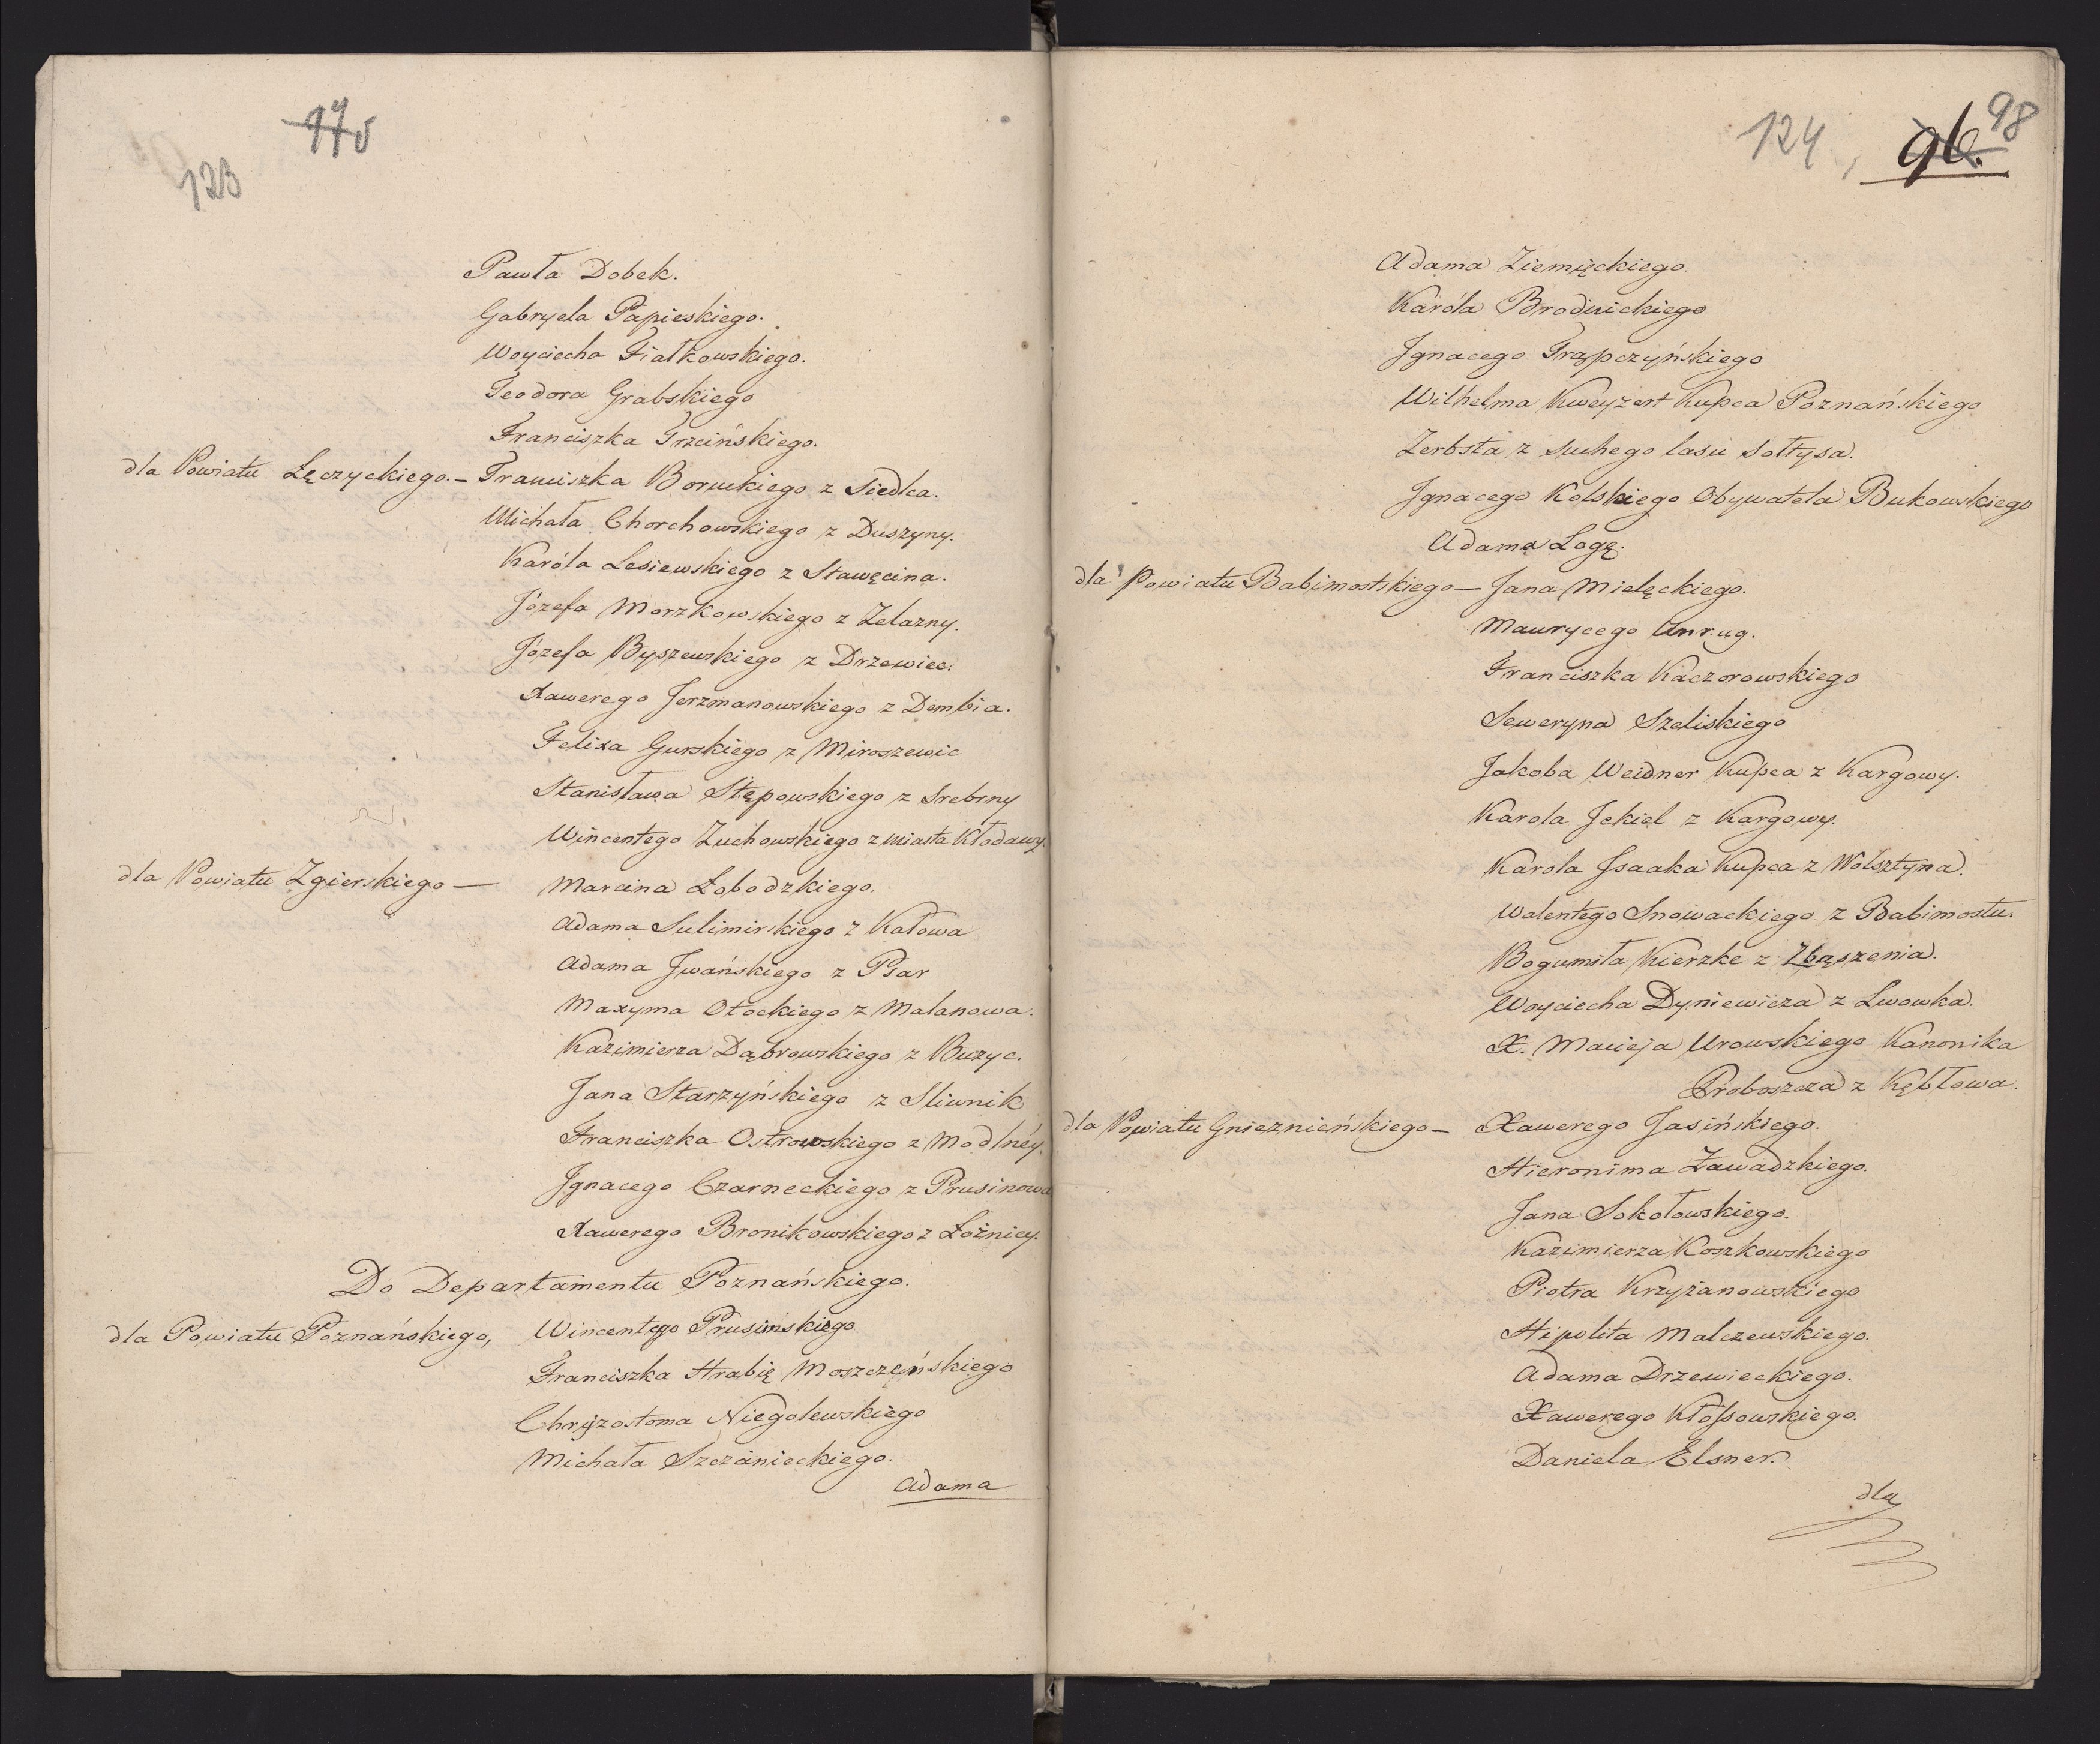 97v
123
Pawła Dobek.
Gabryela Papieskiego.
Woyciecha Fiałkowskiego.
Teodora Grabskiego
Franciszka Trzcińskiego.
dla Powiatu Łęczyckiego. – Franciszka Boruckiego z Siedlca.
Michała Chorchowskiego z Duszyny.
Karóla Lesiewskiego z Stawęcina.
Józefa Morzkowskiego z Zelazny.
Józefa Byszewskiego z Drzewiec.
Xawerego Jerzmanowskiego z Dembia.
Felixa Gurskiego z Miroszewic
Stanisława Stępowskiego z Srebrny
Wincentego Zuchowskiego z miasta Kłodawy.
dla Powiatu Zgierskiego — Marcina Łobodzkiego.
Adama Sulimirskiego z Kałowa
Adama Jwańskiego z Psar
Maxyma Otockiego z Malanowa.
Kazimierza Dąbrowskiego z Buzyc.
Jana Starzyńskiego z Sliwnik
Franciszka Ostrowskiego z Modlney.
Jgnacego Czarneckiego z Prusinowa
Xawerego Bronikowskiego z Łoźnicy.
Do Departamentu Poznańskiego.
dla Powiatu Poznańskiego, Wincentego Prusimskiego
Franciszka Hrabię Moszczeńskiego
Chryzostoma Niegolewskiego
Michała Szczanieckiego.
Adama
124
96.
98
Adama Ziemięckiego.
Karóla Brodnickiego
Jgnacego Trąpczyńskiego
Wilhelma Kweyzert Kupca Poznańskiego
Zerbsta z suchego lasu sołtysa.
Jgnacego Kolskiego Obywatela Bukowskiego
Adama Logę.
dla Powiatu Babimostskiego — Jana Mielęckiego.
Maurycego Unrug.
Franciszka Kaczorowskiego
Seweryna Szeliskiego
Jakoba Weidner Kupca z Kargowy.
Karola Jekiel z Kargowy.
Karola Jsaaka Kupca z Wolsztyna.
Walentego Snowackiego z Babimostu.
Bogumiła Kierzke z Zbąszenia.
Woyciecha Dyniewicza z Lwowka.
X. Macieja Urowskiego Kanonika
Proboszcza z Kębłowa.
dla Powiatu Gnieznieńskiego – Xawerego Jasińskiego.
Hieronima Zawadzkiego.
Jana Sokołowskiego.
Kazimierza Koszkowskiego
Piotra Krzyżanowskiego
Hipolita Malczewskiego.
Adama Drzewieckiego.
Xawerego Kłossowskiego.
Daniela Elsner.
dla